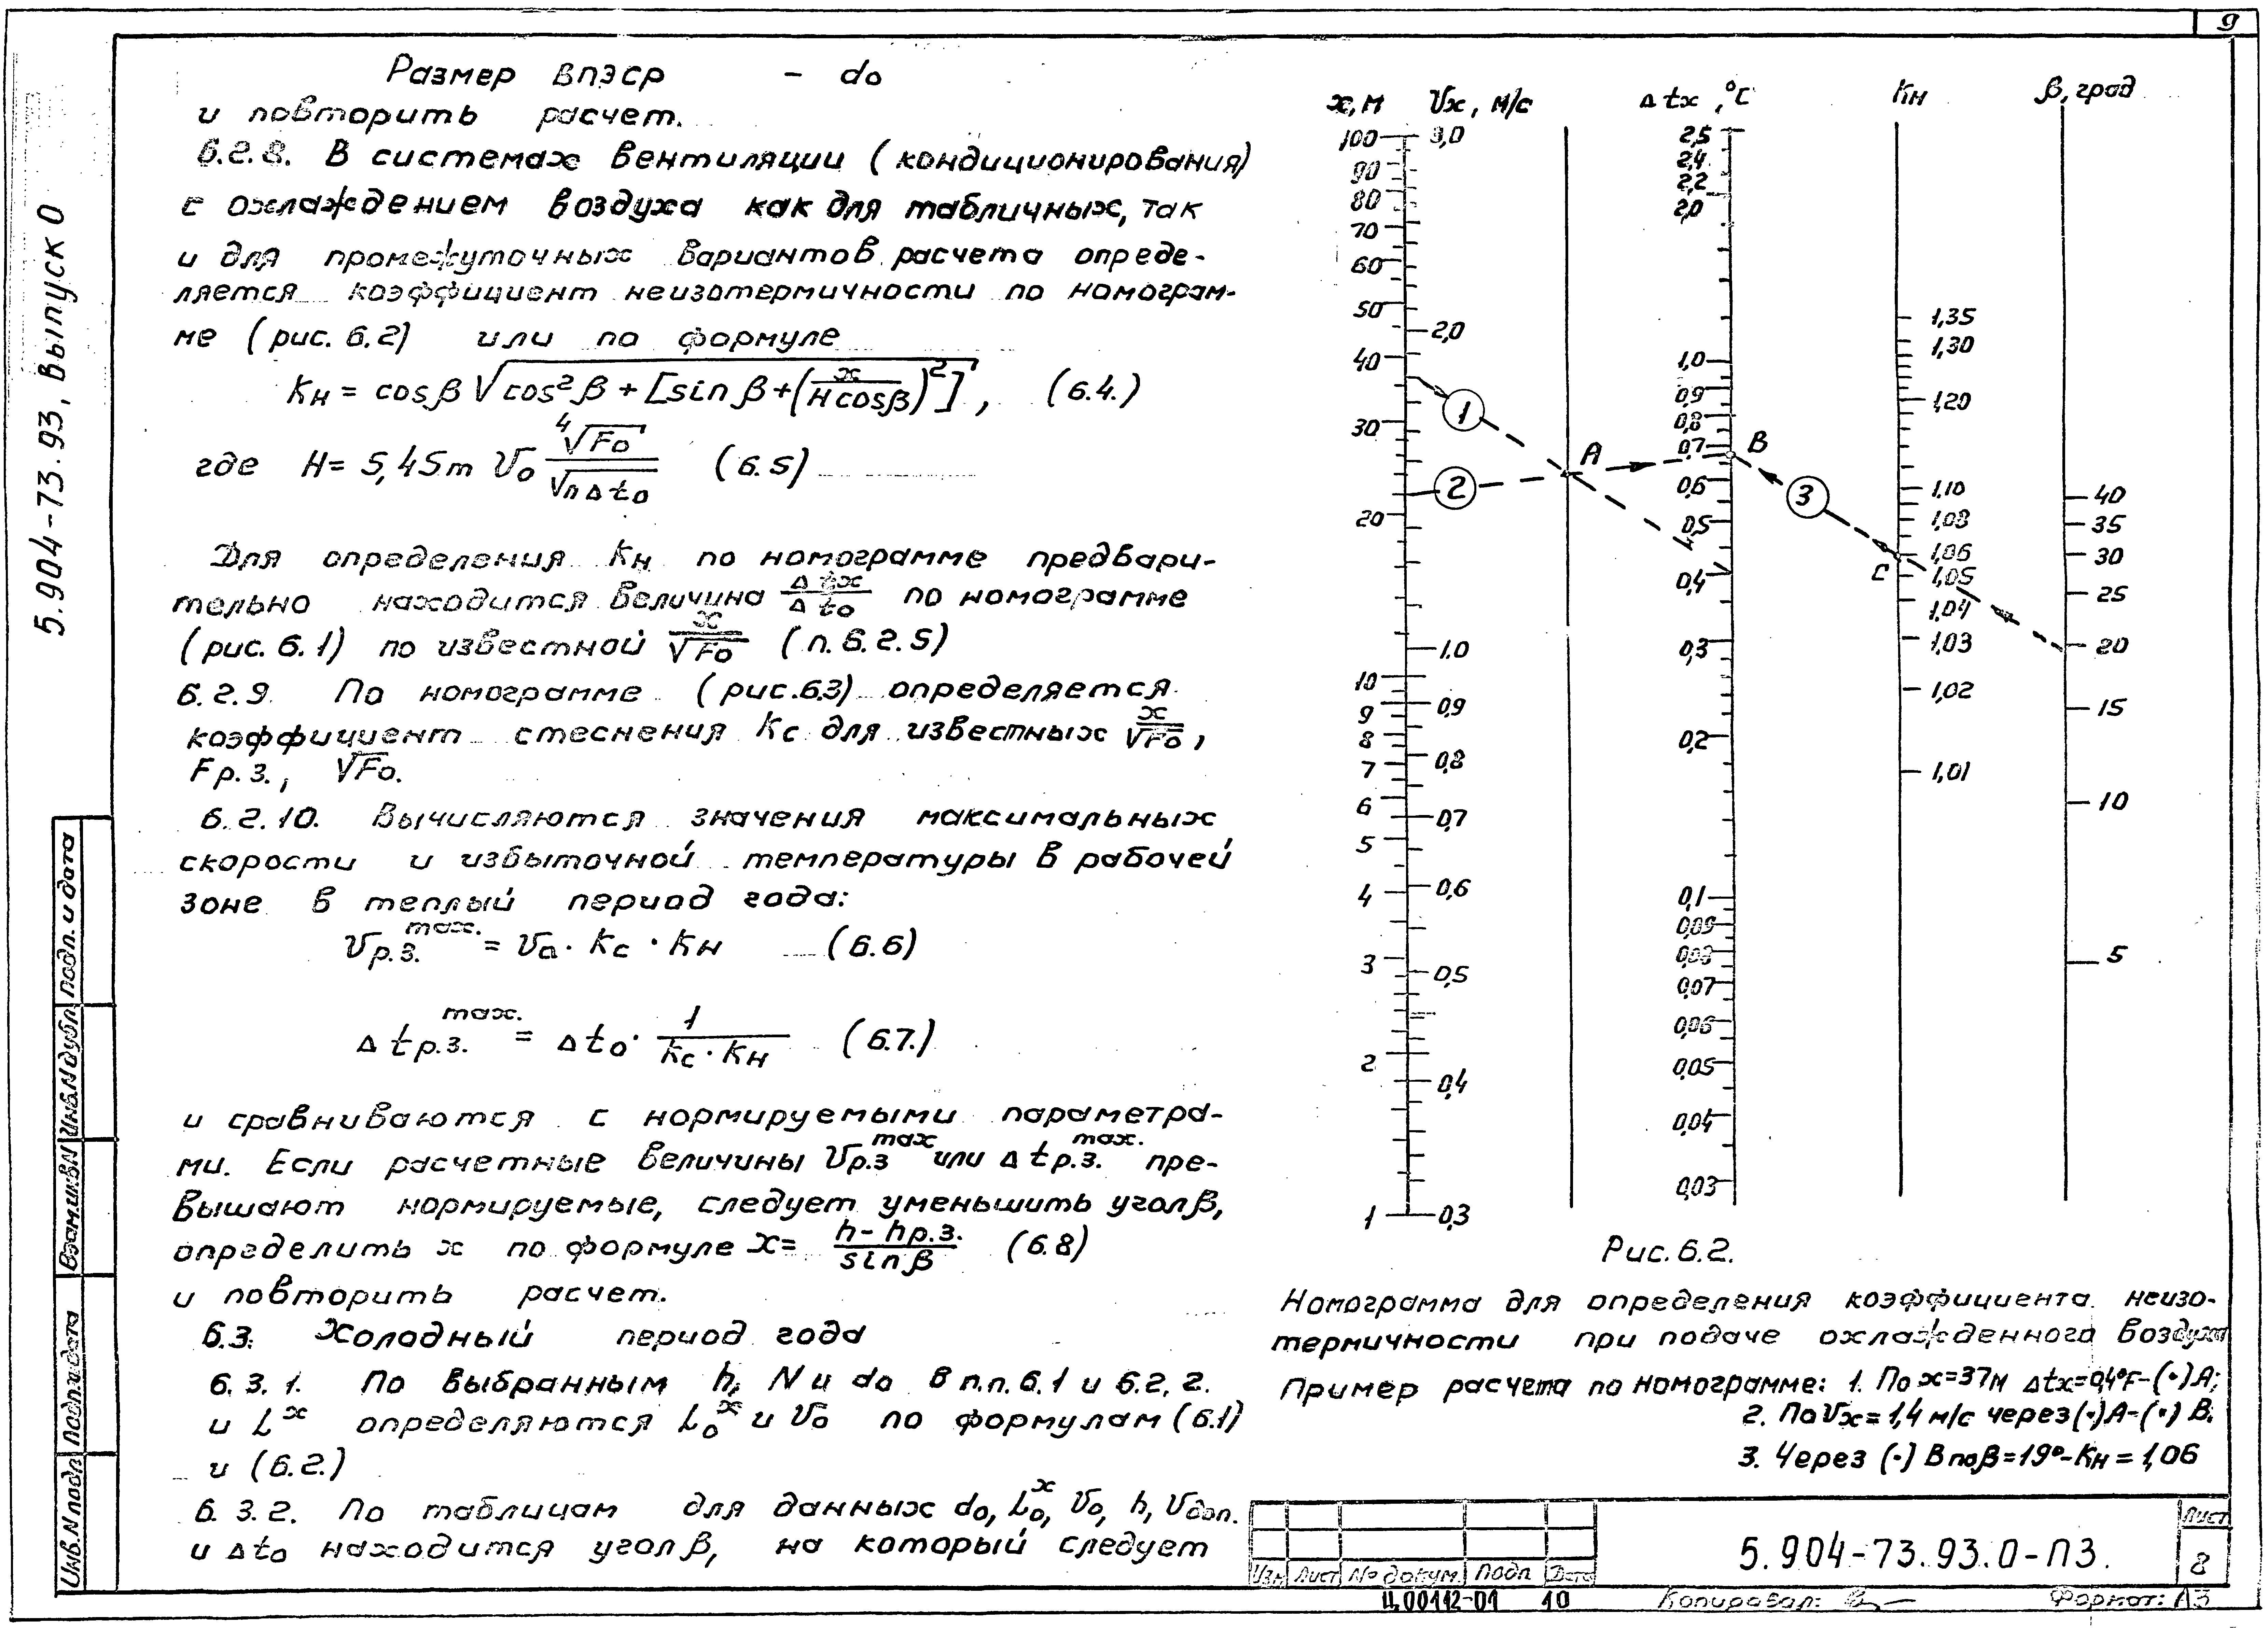 9
5.904-73.93, Выпуск 0
Размер ВПЭСР - do
и повторить расчет.
6.2.8. В системах вентиляции (кондиционирования)
с охлаждением воздуха как для табличных, так
и для промежуточных вариантов расчета опреде-
ляется коэффициент неизотермичности по номограм-
ме (рис. 6.2) или по формуле
Kн = cosβ √cos²β + [sinβ + (x/Hcosβ)²]', (6.4.)
где H = 5,45m Vo ⁴√Fo / √n Δto (6.5)
Для определения Kн по номограмме предвари-
тельно находится величина Δtx/Δto по номограмме
(рис. 6.1) по известной x/√Fo (п. 6.2.5)
6.2.9. По номограмме (рис.6.3) определяется
коэффициент стеснения Kс для известных x/√Fo,
Fр.з., √Fo.
6.2.10. Вычисляются значения максимальных
скорости и избыточной температуры в рабочей
зоне в теплый период года:
Vр.з. max. = Va · Kс · Kн (6.6)
Δtр.з. max. = Δto · 1/Kс · Kн (6.7.)
и сравниваются с нормируемыми параметра-
ми. Если расчетные величины Vр.з max или Δtр.з. max. пре-
вышают нормируемые, следует уменьшить угол β,
определить x по формуле x = h - hр.з. / sinβ (6.8)
и повторить расчет.
6.3. Холодный период года
6.3.1. По выбранным h, N и do в п.п. 6.1 и 6.2.2.
и Lˣ определяются Loˣ и Vo по формулам (6.1)
и (6.2.)
6.3.2. По таблицам для данных do, Loˣ, Vo, h, Vдоп.
и Δto находится угол β, на который следует
x, м Vx, м/с Δtx, °C Kн β, град
100 90 80 70 60 50 40 30 20 10 9 8 7 6 5 4 3 2 1
3,0 2,0 1,0 0,9 0,8 0,7 0,6 0,5 0,4 0,3
2,5 2,4 2,2 2,0 1,0 0,9 0,8 0,7 0,6 0,5 0,4 0,3 0,2 0,1 0,09 0,08 0,07 0,06 0,05 0,04 0,03
1,35 1,30 1,20 1,10 1,08 1,06 1,05 1,04 1,03 1,02 1,01
40 35 30 25 20 15 10 5
1 2 3
A B C
Рис. 6.2.
Номограмма для определения коэффициента неизо-
термичности при подаче охлажденного воздуха
Пример расчета по номограмме: 1. По x=37м Δtx=0,4°F-(·)A;
2. По Vx = 1,4 м/с через (·) A-(·) B.
3. Через (·) B по β=19°-Kн = 1,06
Изм Лист № докум. Подп Дата
5.904-73.93.0-ПЗ.
Лист
8
Ц.00112-01 10
Копировал:
Формат: А3
Подп. и дата
Инв.N дубл.
Взам.инв.N
Подп. и дата
Инв.N подл